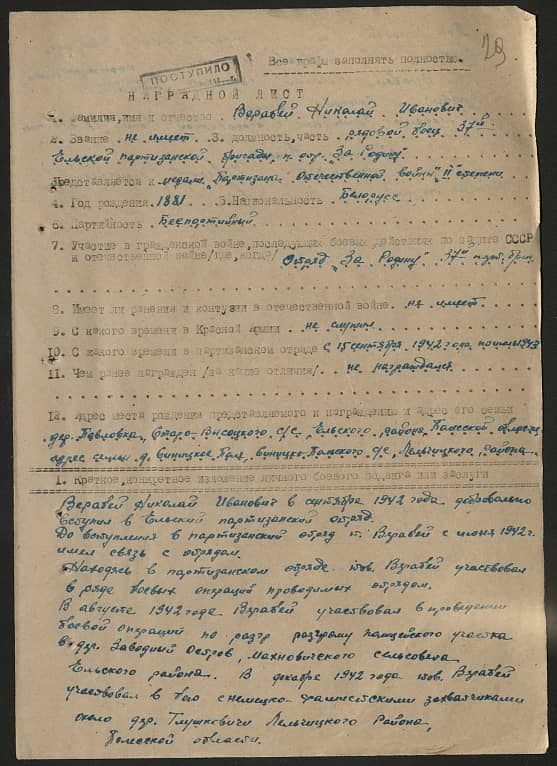 29
Все графы заполнять полностью.
ПОСТУПИЛО
НАГРАДНОЙ ЛИСТ
1. Фамилия, имя и отчество Верабей Николай Иванович
2. Звание не имеет. 3. Должность, часть рядовой боец 37й
Ельской партизанской бригады п. отр. "За Родину"
Представляется к медали "Партизана Отечественной войны" II степени
4. Год рождения 1881. 5. Национальность Белорусс
6. Партийность Беспартийный
7. Участие в гражданской войне, последующих боевых действиях по защите СССР
и отечественной войне /где, когда/ Отряд "За Родину" 37й парт. бриг.
8. Имеет ли ранения и контузии в отечественной войне. не имеет.
9. С какого времени в Красной Армии. не служил
10. С какого времени в партизанском отряде с 15 сентября 1942 года по
11. Чем ранее награжден /за какие отличия/. не награждался
12. Адрес места рождения представляемого к награждению и адрес его семьи
дер. Павловка, Старо-Высоцкого с/с Ельского района, Полесской области,
адрес семьи д. Симицкое Поле, с/с Лельчицкого района
1. Краткое, конкретное изложение личного боевого подвига или заслуги
Верабей Николай Иванович в сентября 1942 года добровольно
вступил в Ельский партизанский отряд.
До вступления в партизанский отряд т. Вэрабей с июня 1942 г.
имел связь с отрядом.
Находясь в партизанском отряде тов. Вэрабей участвовал
в ряде боевых операций проводимых отрядом.
В августе 1942 года Вэрабей участвовал в проведении
боевой операции по разгр разгрому полицейского участка
в дэр. Заводный Остров, Махновичского сельсовета
Ельского района. В декабре 1942 года тов. Вэрабей
участвовал в бою с немецко-фашистскими захватчиками
около дэр. Глушкевичи Лельчицкого Района,
Полесской области.